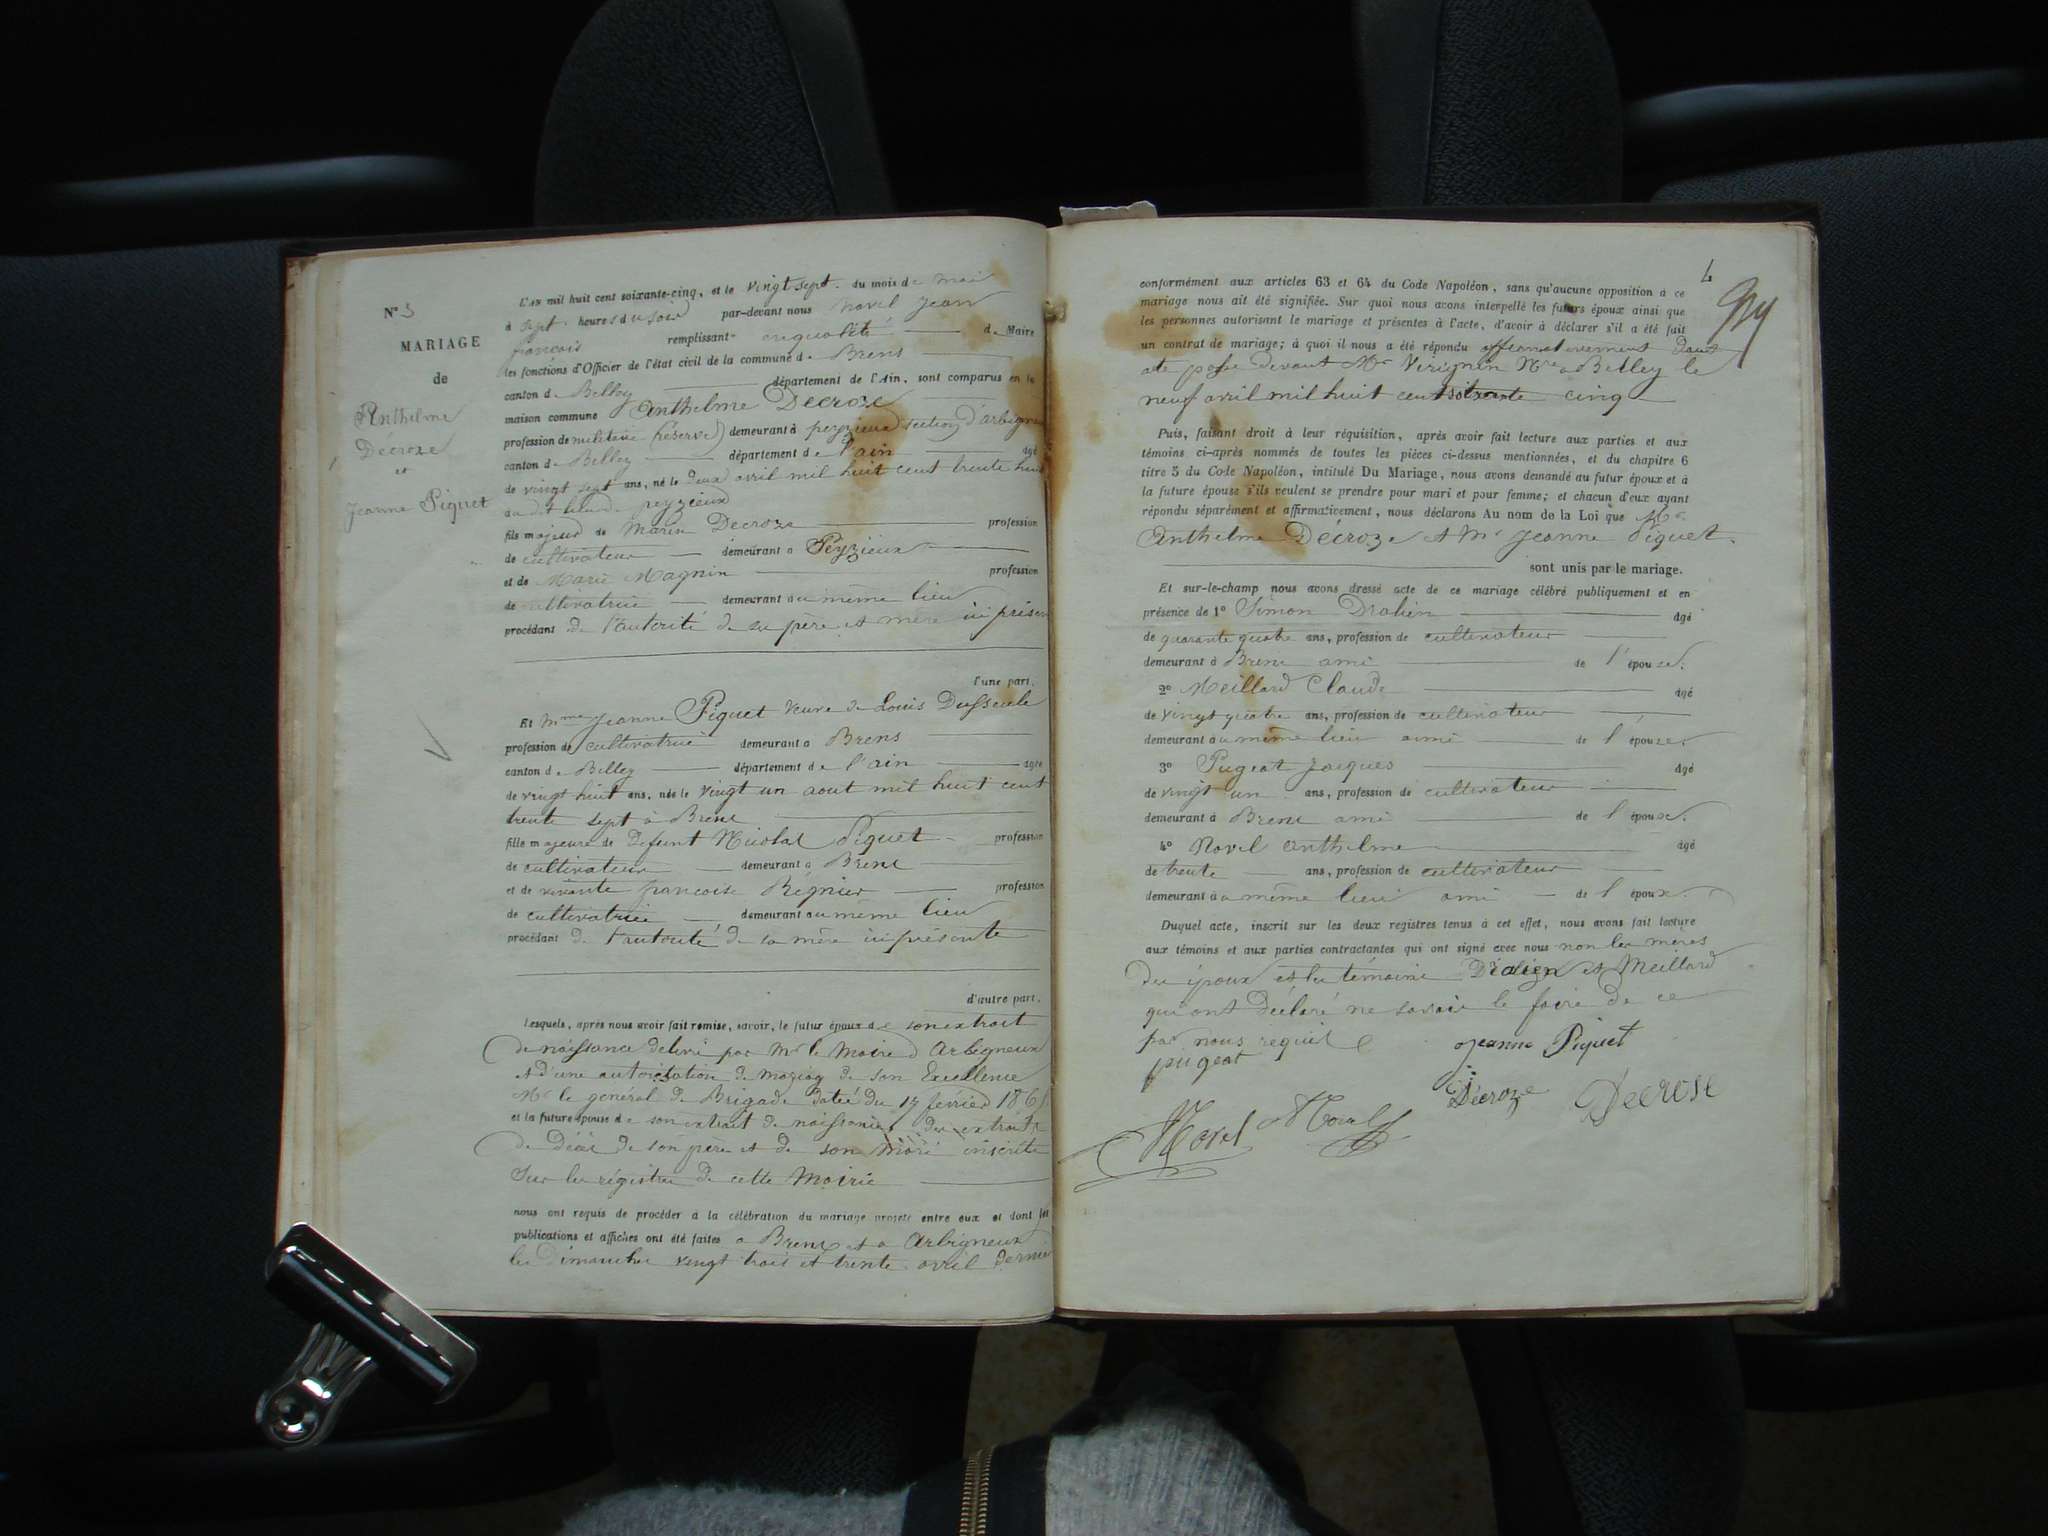 N° 3
MARIAGE
de
Anthelme
Décroze
et
Jeanne Piquet
L'AN mil huit cent soixante-cinq, et le vingt sept du mois de mai
à sept heures du soir par-devant nous Novel Jean
françois remplissant en qualité de Maire
les fonctions d'Officier de l'état civil de la commune de Brens
canton de Belley département de l'Ain, sont comparus en la
maison commune Anthelme Décroze
profession de militaire (réserve) demeurant à peyzieux section d'arbignieu
canton de Belley département de l'ain âgé
de vingt sept ans, né le deux avril mil huit cent trente huit
au dit lieu de peyzieux
fils majeur de Marin Décroze profession
de cultivateur demeurant à Peyzieux
et de Marie Magnin profession
de cultivatrice demeurant au même lieu
procédant de l'autorité de ses père et mère ici présen
l'une part.
Et Mme Jeanne Piquet veuve de Louis
profession de cultivatrice demeurant à Brens
canton de Belley département de l'ain âgée
de vingt huit ans, née le vingt un aout mil huit cent
trente sept à Brens
fille majeure de Defunt Nicolas Piquet profession
de cultivateur demeurant à Brens
et de vivante françoise Régnier profession
de cultivatrice demeurant au même lieu
procédant de l'autorité de sa mère ici présente
d'autre part.
Lesquels, après nous avoir fait remise, savoir, le futur époux de son extrait
de naissance delivré par Mr le Maire d'Arbigneux
et d'une autorisation de mariag de son Excellence
Mr le général de Brigade datée du 17 février 1865
et la future épouse de son extrait de naissance, des extraits
de Décès de son père et de son Mari inscrits
Sur les régistres de cette Mairie
nous ont requis de procéder à la célébration du mariage projeté entre eux et dont les
publications et affiches ont été faites à Brens et à Arbigneux
les Dimanches vingt trois et trente avril dernier
4
conformément aux articles 63 et 64 du Code Napoléon, sans qu'aucune opposition à ce
mariage nous ait été signifiée. Sur quoi nous avons interpellé les futurs époux ainsi que
les personnes autorisant le mariage et présentes à l'acte, d'avoir à déclarer s'il a été fait
un contrat de mariage; à quoi il nous a été répondu affirmativement dont
acte passé devant Mr Vérignin Nre à Belley le
neuf avril mil huit cent soixante cinq
Puis, faisant droit à leur réquisition, après avoir fait lecture aux parties et aux
témoins ci-après nommés de toutes les pièces ci-dessus mentionnées, et du chapitre 6
titre 5 du Code Napoléon, intitulé Du Mariage, nous avons demandé au futur époux et à
la future épouse s'ils veulent se prendre pour mari et pour femme; et chacun d'eux ayant
répondu séparément et affirmativement, nous déclarons Au nom de la Loi que Mr
Anthelme Décroze et Me Jeanne Piquet.
sont unis par le mariage.
Et sur-le-champ nous avons dressé acte de ce mariage célébré publiquement et en
présence de 1° Simon Dralien âgé
de quarante quatre ans, profession de cultivateur
demeurant à Brens ami de l'épouse.
2° Meillard Claude âgé
de vingt quatre ans, profession de cultivateur
demeurant au même lieu ami de l'épouse.
3° Pugeat Jacques âgé
de vingt un ans, profession de cultivateur
demeurant à Brens ami de l'époux.
4° Novel anthelme âgé
de trente ans, profession de cultivateur
demeurant au même lieu ami de l'époux.
Duquel acte, inscrit sur les deux registres tenus à cet effet, nous avons fait lecture
aux témoins et aux parties contractantes qui ont signé avec nous non les mères
des époux et les témoins Dralien et Meillard
qui ont Déclaré ne savoir le faire de ce
par nous requis
pugeat
Jeanne Piquet
Décroze
Décrose
Novel
Novel